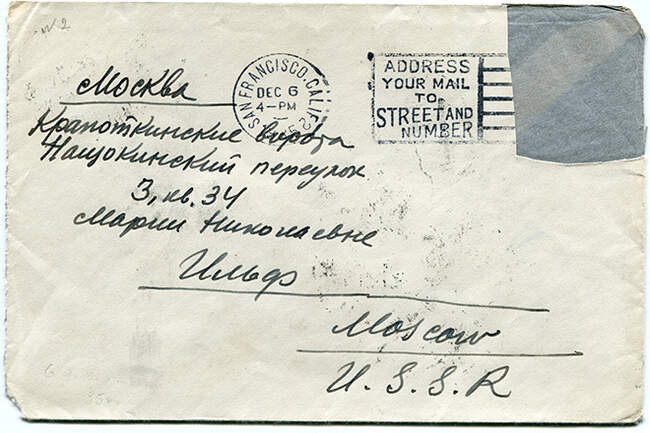 № 2
Москва
SAN FRANCISCO, CALIF.
DEC 6
4-PM
ADDRESS
YOUR MAIL
TO
STREET AND
NUMBER
Крапоткинские ворота
Нащокинский переулок
3, кв. 34
Марии Николаевне
Ильф
Moscow
U. S. S. R